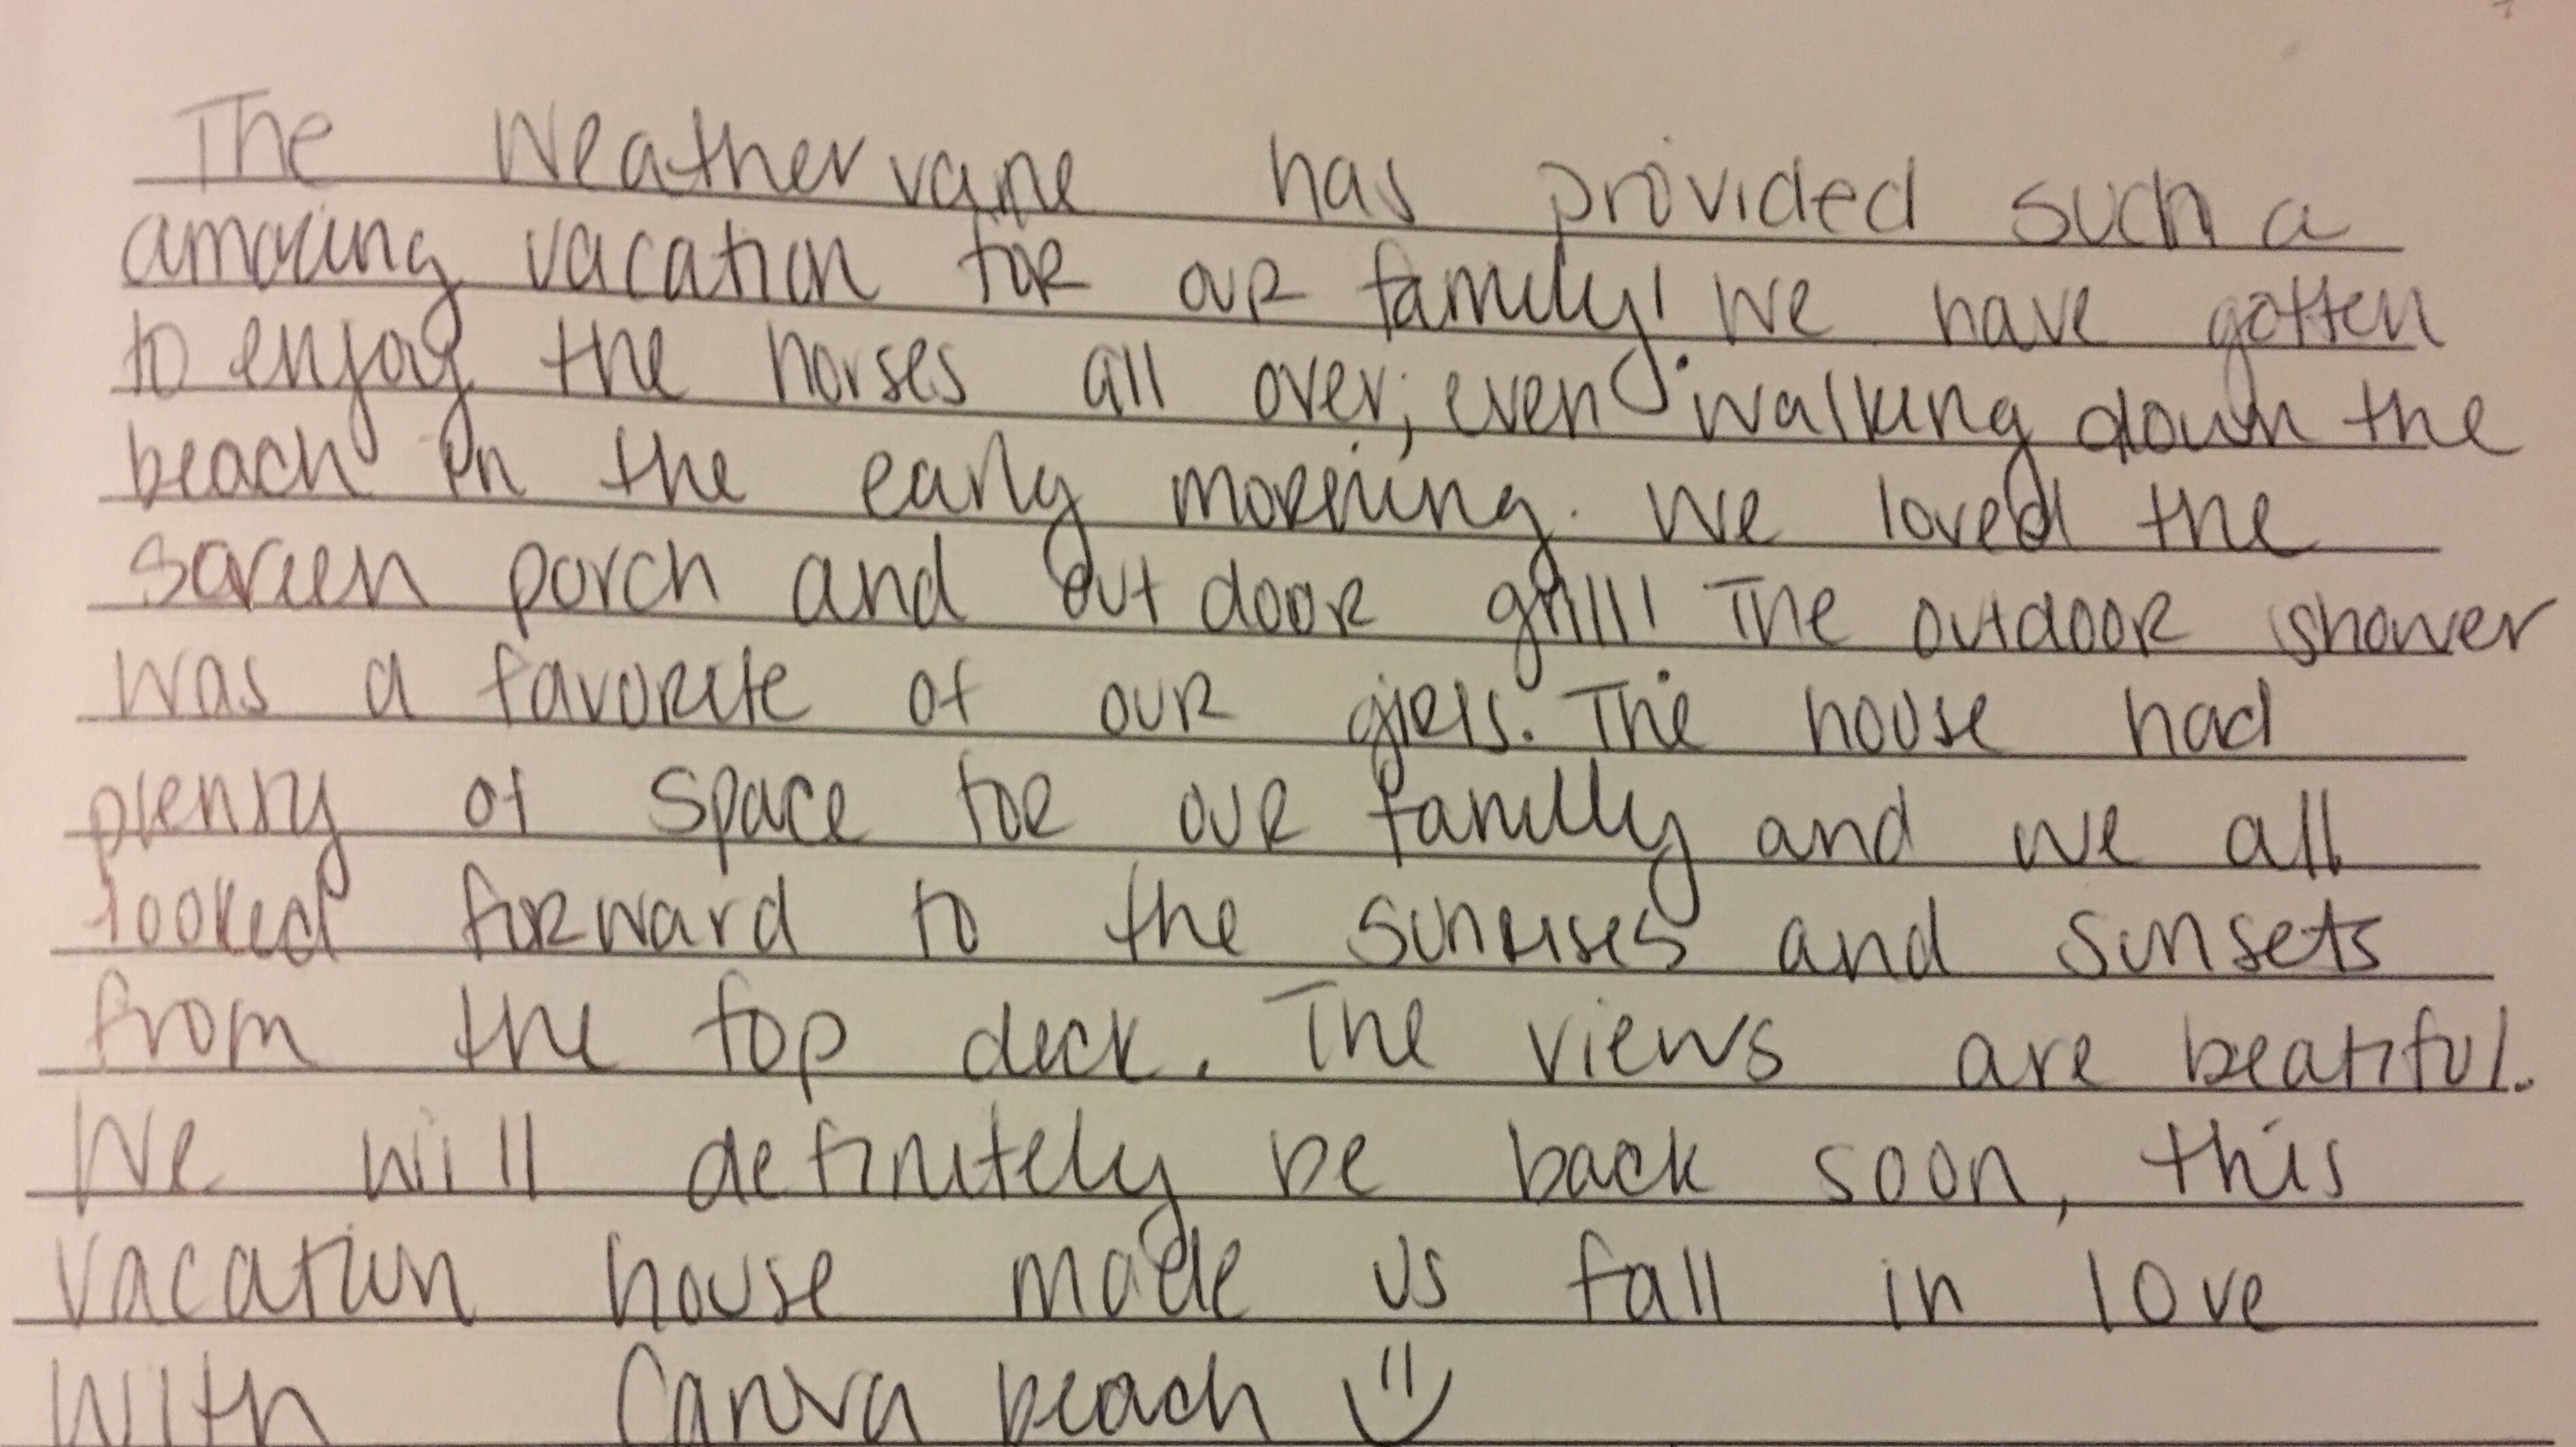 The Weather vane has provided such a
amazing vacation for our family! We have gotten
to enjoy the horses all over, even walking down the
beach in the early morning. We loved the
screen porch and out door grill! The outdoor shower
was a favorite of our girls. The house had
plenty of space for our familly and we all
looked forward to the sunrises and sunsets
from the top deck. The views are beatiful.
We will definitely be back soon, this
vacation house made us fall in love
with beach